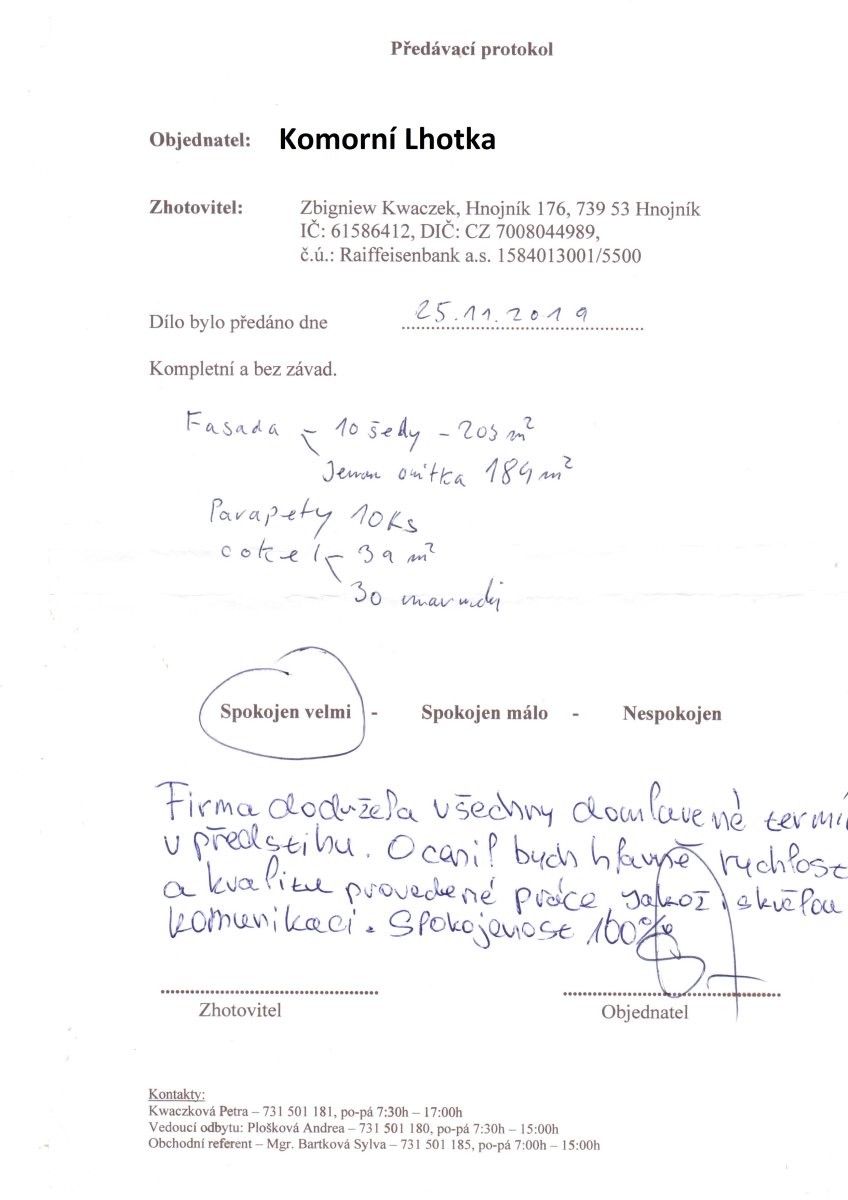 Předávací protokol
Objednatel: Komorní Lhotka
Zhotovitel: Zbigniew Kwaczek, Hnojník 176, 739 53 Hnojník
IČ: 61586412, DIČ: CZ 7008044989,
č.ú.: Raiffeisenbank a.s. 1584013001/5500
Dílo bylo předáno dne 25.11.2019
Kompletní a bez závad.
Fasada - 10 šedy - 203 m²
omítka 184 m²
Parapety 10ks
cokel - 39 m²
30
Spokojen velmi - Spokojen málo - Nespokojen
Firma dodržela všechny domluvené termí
v předstihu. Ocenil bych hlavně rychlost
a kvalitu provedené práce, jakož i skvělou
komunikaci. Spokojenost 100%
Zhotovitel Objednatel
Kontakty:
Kwaczková Petra – 731 501 181, po-pá 7:30h – 17:00h
Vedoucí odbytu: Plošková Andrea – 731 501 180, po-pá 7:30h – 15:00h
Obchodní referent – Mgr. Bartková Sylva – 731 501 185, po-pá 7:00h – 15:00h